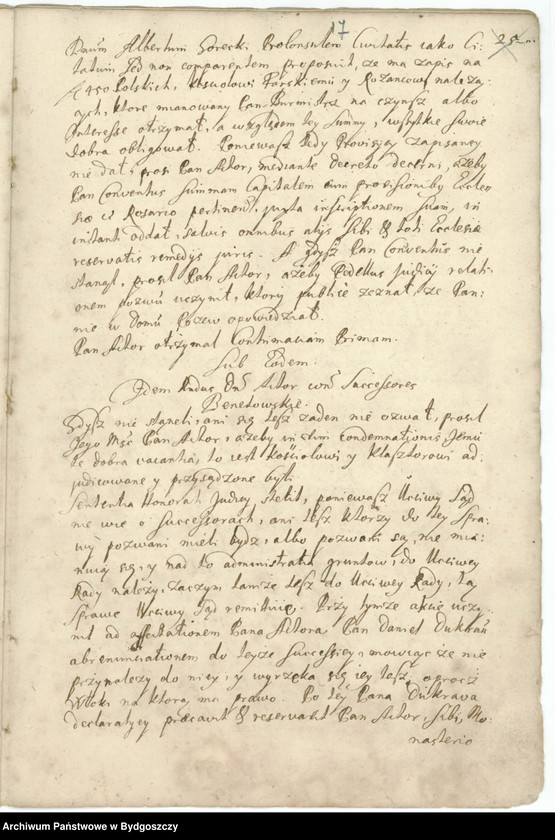 17
25
Panem Albertum Gorecki Proconsulem Civitatis iako Ci-
tatum sed non comparentem proposuit, że ma zapis na
450 Polskich, Kosciołowi Farskiemu y Rozancowi należą-
cych, ktore mianowany Pan Burmistrz na czynsz albo
Interesse otrzymał, a względem tey summy, wszytkie swoie
dobra obligował. Poniewasz tedy Prowizyey zapisaney
nie dał, prosi Pan Aktor, mediante decreto decerni, ażeby
Pan Conventus Summam Capitalem cum provisionibus Eccle-
siæ et Rosario pertinen: juxta inscriptionem suam, in
instanti oddał, salvis omnibus alys sibi & toti Ecclesiæ
reservatis remedys iuris. A Gdysz Pan Conventus nie
stanął, prosił Pan Aktor, ażeby Pedellus Judicij relati-
onem pozwu uczynił, ktory publicè zeznał, że Pan:
nie w Domu Pozew opowiedział.
Pan Aktor otrzymał Contumaciam Primam.
Sub Eodem.
Idem Rndus Dns Actor con: Successores
Benetowskie.
Gdysz nie staneli, ani się tesz żaden nie ozwał, prosił
Jego Msc Pan Aktor, ażeby in vim condemnationis Jemu
te dobra vacantia, to iest kościołowi y klasztorowi ad-
judicowane y przysądzone byli.
Sententia Honorati Judicy stetit, poniewasz Uczciwy Sąd
nie wie o Successorach, ani tesz ktorzy do tey Spra-
wy pozwani mieli bydz, albo pozwani są, nie mia-
nuią się, y nad to administratia gruntow, do Uczciwey
Rady należy, zaczym tamże tesz do Uczciwey Rady, tą
Sprawę Uczciwy Sąd remittuię. Przy tymże akcie uczy-
nił ad affectationem Pana Aktora Pan Daniel Dukraw
abrenunciationem do teyże Successiey, mowiąc że nie
przynależy do niey, y wyrzeka się iey tesz, oprocz
Włoki na ktorą ma prawo. Po tey Pana Dukrawa
declaratiey præcavit & reservavit Pan Aktor, Sibi, Mo-
nasterio
Archiwum Państwowe w Bydgoszczy